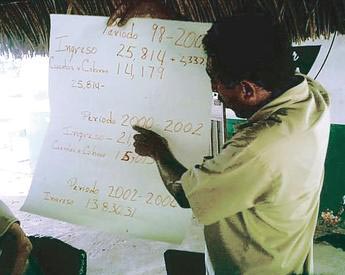 Periodo 98-200
Ingreso 25,814 + 2,332
Cuentas x Cobrar 14,179
25,814-
Periodo 2000-2002
Ingreso-
Cuentas x Cobrar
Periodo 2002-200
Ingreso